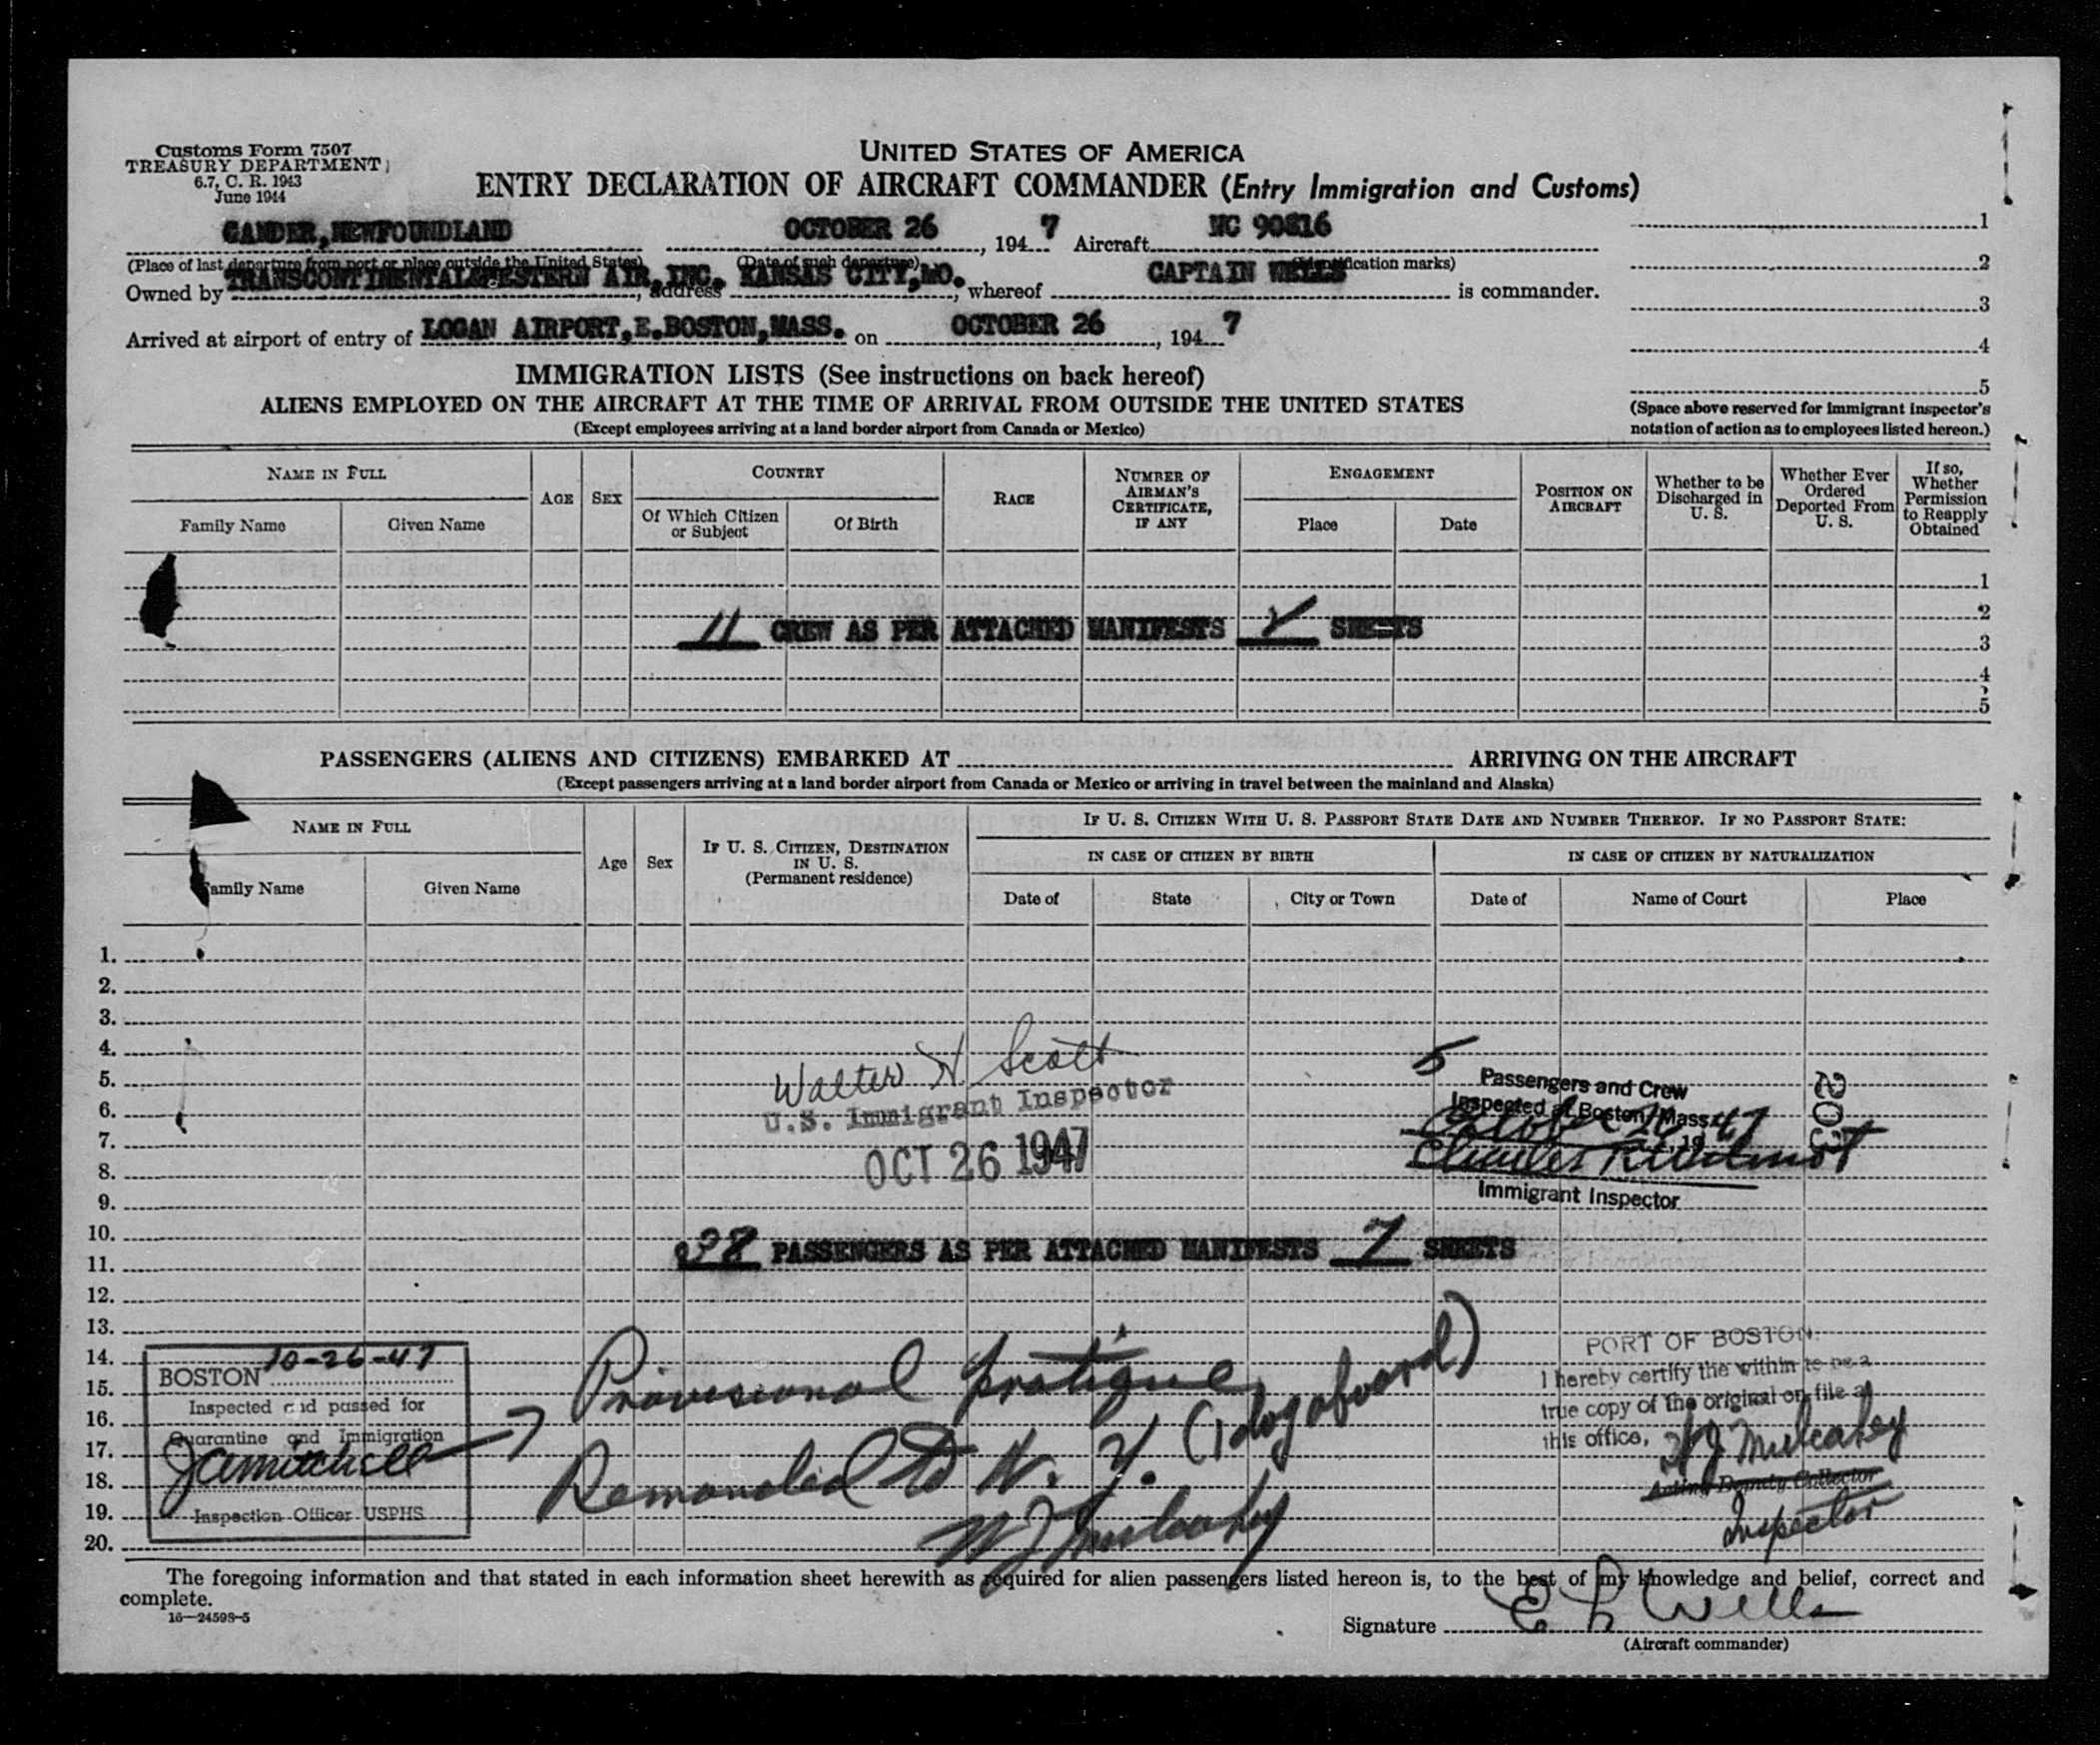 Customs Form 7507
TREASURY DEPARTMENT
6.7, C. R. 1943
June 1944
UNITED STATES OF AMERICA
ENTRY DECLARATION OF AIRCRAFT COMMANDER (Entry Immigration and Customs)
GANDER, NEWFOUNDLAND OCTOBER 26, 1947 Aircraft NC 90816
(Place of last departure from port or place outside the United States) (Date of such departure) (Identification marks)
Owned by TRANSCONTINENTAL&WESTERN AIR, INC., address KANSAS CITY, MO., whereof CAPTAIN WELLS is commander.
Arrived at airport of entry of LOGAN AIRPORT, E. BOSTON, MASS. on OCTOBER 26, 1947
1
2
3
4
5
(Space above reserved for immigrant inspector's notation of action as to employees listed hereon.)
IMMIGRATION LISTS (See instructions on back hereof)
ALIENS EMPLOYED ON THE AIRCRAFT AT THE TIME OF ARRIVAL FROM OUTSIDE THE UNITED STATES
(Except employees arriving at a land border airport from Canada or Mexico)
NAME IN FULL
Family Name
Given Name
AGE
SEX
COUNTRY
Of Which Citizen or Subject
Of Birth
RACE
NUMBER OF AIRMAN'S CERTIFICATE, IF ANY
ENGAGEMENT
Place
Date
POSITION ON AIRCRAFT
Whether to be Discharged in U. S.
Whether Ever Ordered Deported From U. S.
If so, Whether Permission to Reapply Obtained
1
2
11 CREW AS PER ATTACHED MANIFESTS SHEETS
3
4
5
PASSENGERS (ALIENS AND CITIZENS) EMBARKED AT ARRIVING ON THE AIRCRAFT
(Except passengers arriving at a land border airport from Canada or Mexico or arriving in travel between the mainland and Alaska)
NAME IN FULL
Family Name
Given Name
Age
Sex
IF U. S. CITIZEN, DESTINATION IN U. S.
(Permanent residence)
IF U. S. CITIZEN WITH U. S. PASSPORT STATE DATE AND NUMBER THEREOF. IF NO PASSPORT STATE:
IN CASE OF CITIZEN BY BIRTH
Date of
State
City or Town
IN CASE OF CITIZEN BY NATURALIZATION
Date of
Name of Court
Place
1.
2.
3.
4.
5.
6.
7.
8.
9.
10.
11.
12.
13.
14.
15.
16.
17.
18.
19.
20.
Walter H. Scott
U.S. Immigrant Inspector
OCT 26 1947
5
Passengers and Crew
Inspected at Boston, Mass.
October 26 1947
Immigrant Inspector
203
38 PASSENGERS AS PER ATTACHED MANIFESTS 7 SHEETS
BOSTON 10-26-47
Inspected and passed for
Quarantine and Immigration
JA Mitchell
Inspection Officer USPHS
Provisional pratique
Remanded to N. Y. (1 dog aboard)
WJ Mulcahy
PORT OF BOSTON.
I hereby certify the within to be a
true copy of the original on file at
this office,
WJ Mulcahy
Acting Deputy Collector
Inspector
The foregoing information and that stated in each information sheet herewith as required for alien passengers listed hereon is, to the best of my knowledge and belief, correct and
complete.
16—24598-5
Signature E L Wells
(Aircraft commander)